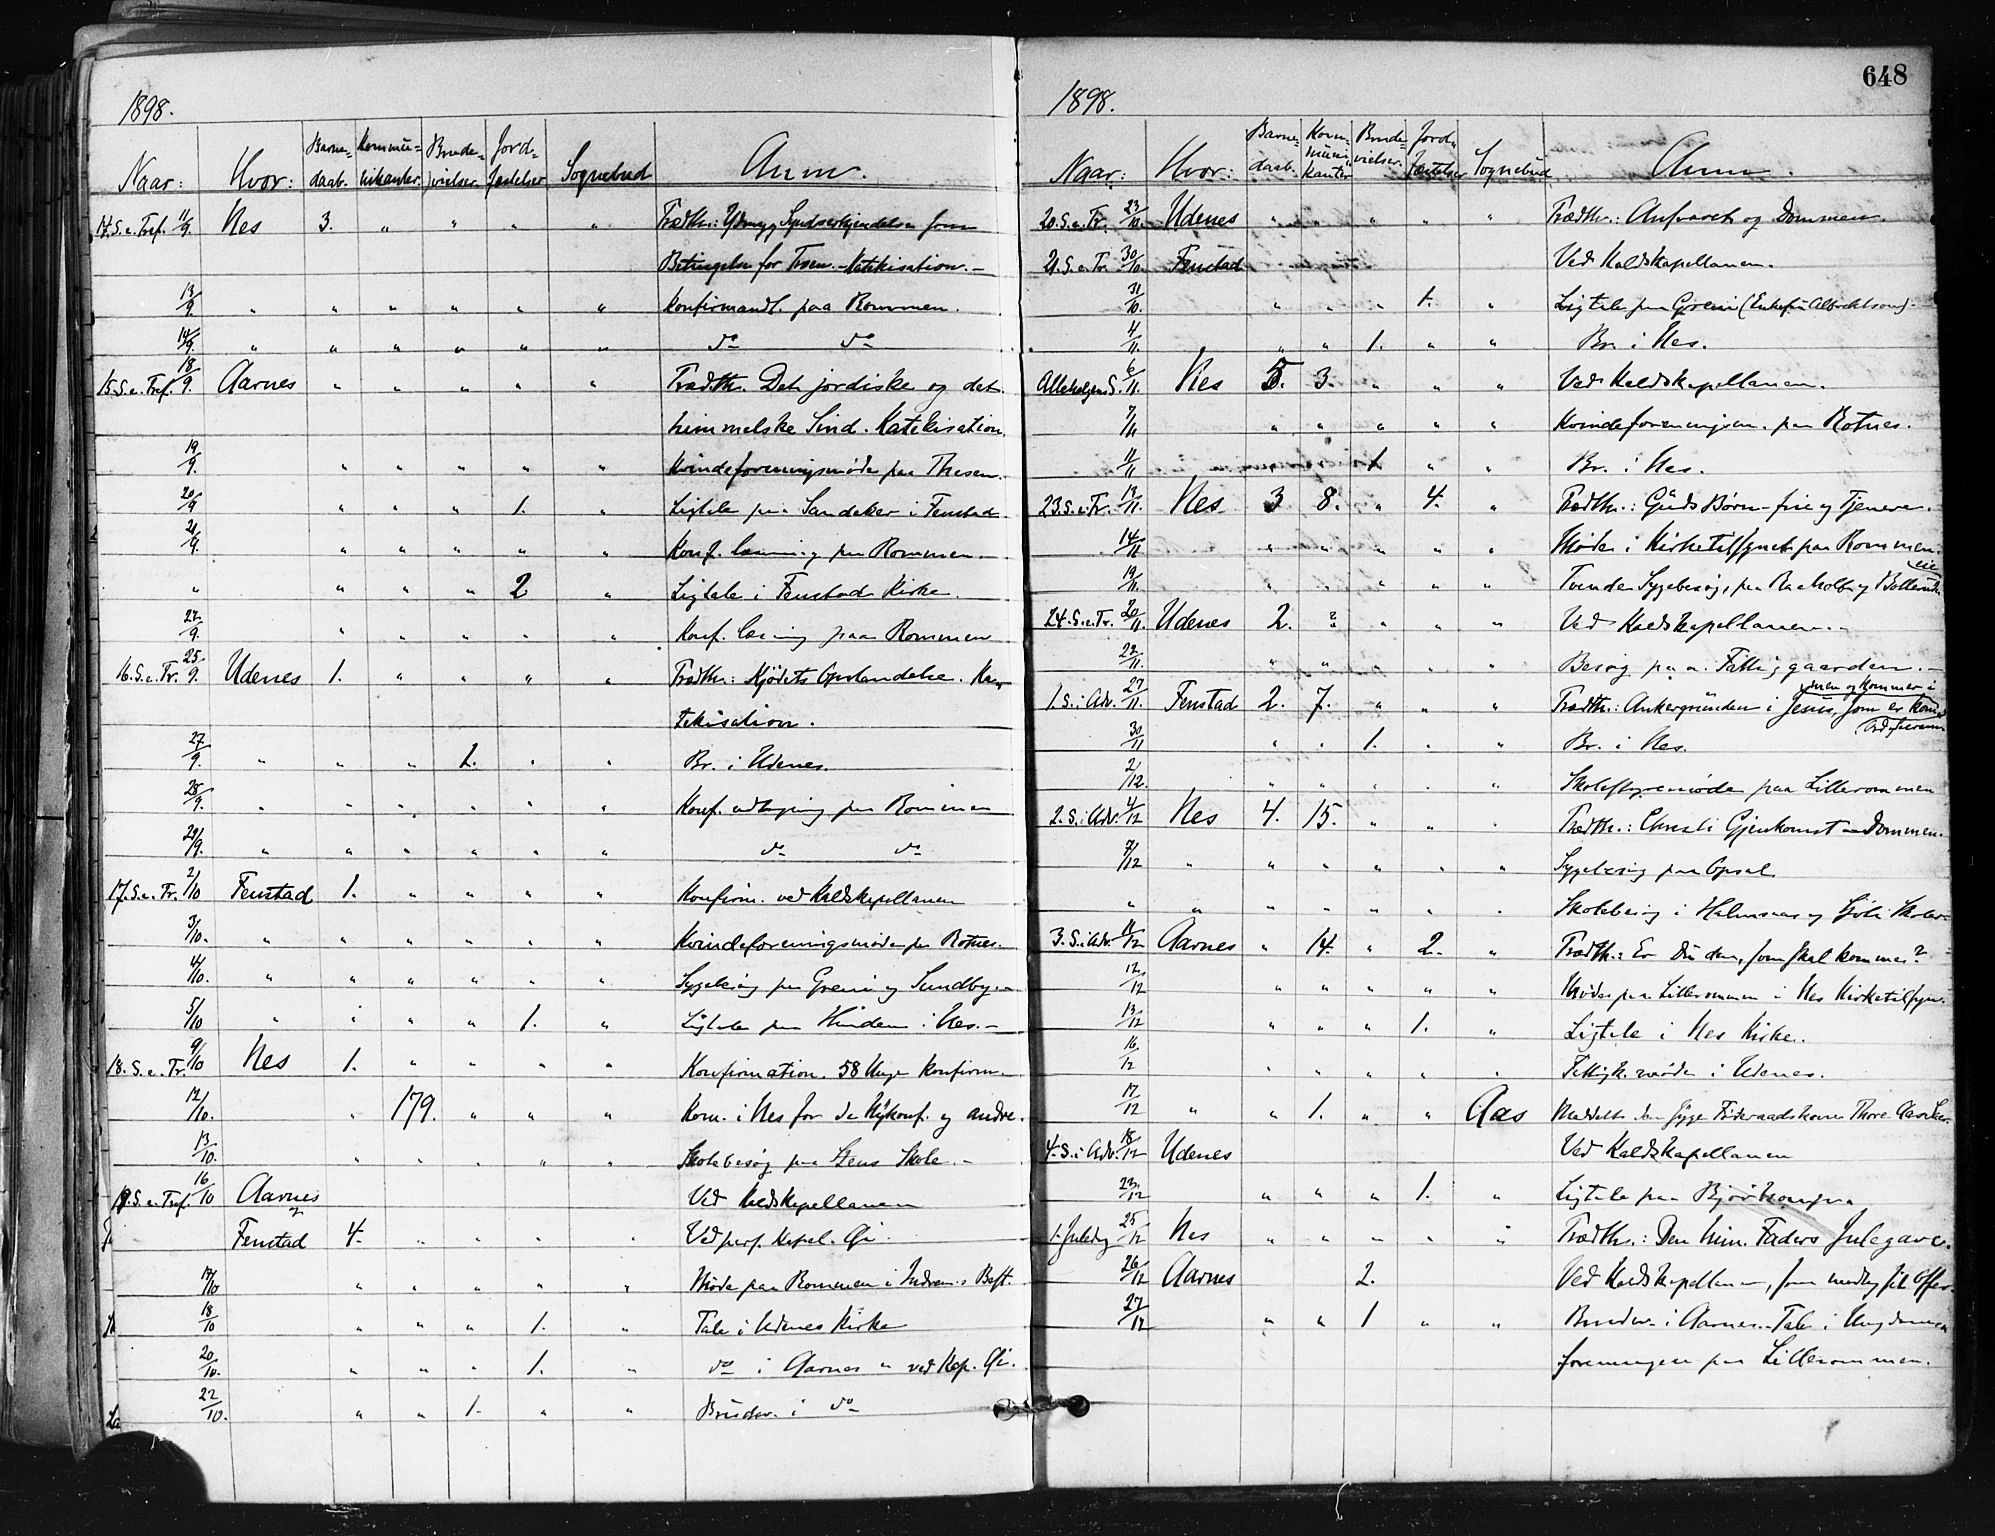 1898.
Naar: Hvor: Barne- Kommu- Brude- Jord- Sognebud Anm.
daab. nikanter. vielser. fæstelser
14. S. e. Tref. 11/9. Nes 3. " " " " Prædth.: Ydmyg Syndserkjendelse som
Betingelse for Troen. - Katekisation. -
13/9 " " " " " " Konfirmandl. paa Rommen.
14/9. " " " " " " do do
15. S. e. Tref. 18/9. Aarnes " " " " " Prædth. Det jordiske og det
himmelske Sind. Katekisation.
19/9. " " " " " Kvindeforeningsmøde paa Thesen.
20/9 " " " 1. " Ligtale paa Sandaker i Fenstad
21/9. " " " " " Konf. læsning paa Rommen.
" " " " 2 " Ligtale i Fenstad Kirke.
22/9. " " " " " Konf. læsning paa Rommen
16. S. e. Tr. 25/9. Udenes 1. " " " " Prædth.: Kjødets Opstandelse. Ka-
tekisation.
27/9. " " " 1. " " Br. i Udenes.
28/9. " " " " " " Konf. paa Rommen
29/9. " " " " " " do do
17. S. e. Tr. 2/10 Fenstad 1. " " " " Konfirm. ved Kaldskapellanen
3/10. " " " " " " Kvindeforeningsmøde paa Rotnes.
4/10. " " " " " " Sygebesøg paa Greni og Sundby. -
5/10 " " " " 1. " Ligtale paa Hinden i Nes. -
18. S. e. Tr. 9/10 Nes 1. " " " " Konfirmation. 58 Unge konfirm.
12/10. " 179. " " " Kom. i Nes for de Nykonf. og andre.
13/10. " " " " " Skolebesøg paa Skole. -
19. S. e. Tref. 16/10 Aarnes Ved Kaldskapellanen
Fenstad 4. " " " " Ved pers. Kapel. Gi.
17/10 " " " " " Møde paa Rommen i Best.
18/10 " " " 1. " Tale i Udenes Kirke
20/10. " " " 1. " do i Aarnes " ved Kap. Gi.
22/10. " " 1. " " Brudev. i do

648
1898.
Naar: Hvor: Barne- Kom- Brude- Jord- Sognebud Anm.
daab. muni- vielser. fæstelser
kanter
20. S. e. Tr. 23/10. Udenes " " " " " Prædth.: Ansvaret og Dommen.
21. S. e. Tr. 30/10. Fenstad Ved Kaldskapellanen.
31/10. " " " 1. " Ligtale paa Greni (Enkefru Albrechtson).
4/11. " " 1. " " Br. i Nes.
Allehelgens S. 6/11. Nes 5. 3. " " " Ved Kaldskapellanen.
7/11 " " " " " Kvindeforeningsm. paa Rotnes.
11/11 " " 1 " " Br. i Nes.
23. S. e. Tr. 13/11. Nes 3 8. " 4. " Prædth.: Guds Børn - frie og Tjenere.
14/11 " " " " " Møde i Kirketilsynet paa Rommen.
19/11. " " " " " Tvende Sygebesøg, paa Raaholt og
24. S. e. Tr. 20/11. Udenes 2. " " " " Ved Kaldskapellanen. -
22/11. " " " " " Besøg paa Fattiggaarden. -
1. S. i Adv. 27/11. Fenstad 2. 7. " " " Prædth.: Ankergrunden i Jesus, som er kom-
men og kommer i
30/11 " " 1. " " Br. i Nes.
2/12. " " " " " Skolestyremøde paa Lillerommen
2. S. i Adv. 4/12 Nes 4. 15. " " " Prædth.: Christi Gjenkomst Dommen.
7/12 " " " " " " Sygebesøg paa Opsal.
" " " " " " " Skolebesøg i Halmsaas og Skoler.
3. S. i Adv. 11/12 Aarnes " 14. " 2. " Prædth.: Er Du den, som skal komme?
12/12 " " " " " Møde paa Lillerommen i Nes Kirketilsyn.
13/12 " " " 1. " Ligtale i Nes Kirke.
16/12 " " " " " Fattigk. møde i Udenes.
17/12 " " 1. " " Aas Meddelt den syge Føderaadskone Thore
4. S. i Adv. 18/12 Udenes Ved Kaldskapellanen
23/12 " " " 1. " Ligtale paa
1. Juledag 25/12 Nes " " " " " Prædth.: Den him. Faders Julegave.
26/12 Aarnes 2. Ved Kaldskapellanen, som modtog sit Offer.
27/12 " " 1 " " Brudev. i Aarnes. - Tale i Ungdoms-
foreningen paa Lillerommen.